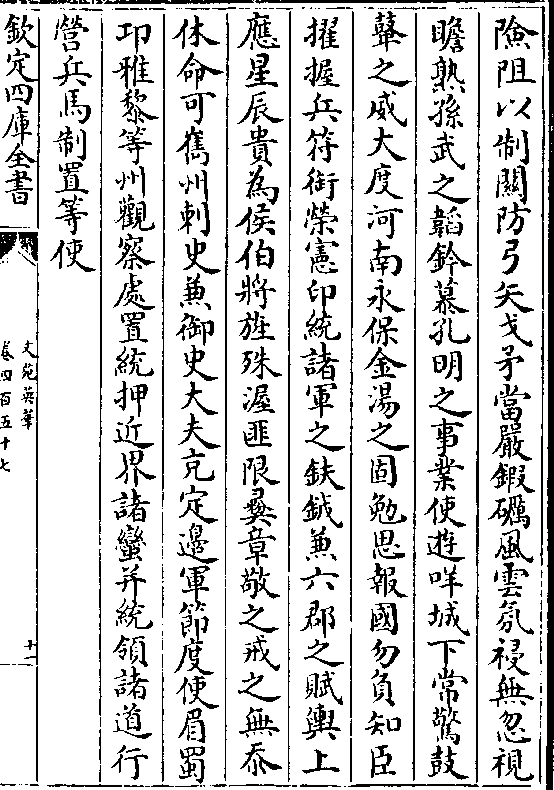 險阻以制關防弓矢戈矛當嚴鍜礪風雲氛祲無忽視
瞻熟孫武之韜鈐慕孔明之事業使遊咩城下常驚鼓
鼙之威大度河南永保金湯之固勉思報國勿負知臣
擢握兵符銜榮憲印統諸軍之鈇鉞兼六郡之賦輿上
應星辰貴為侯伯將旌殊渥匪限彞章敬之戒之無忝
休命可雋州刺史兼御史大夫充定邊軍節度使眉蜀
卭雅黎等州觀察處置統押近界諸蠻并統領諸道行
營兵馬制置等使
欽定四庫全書
文苑英華
卷四百五十七
十一